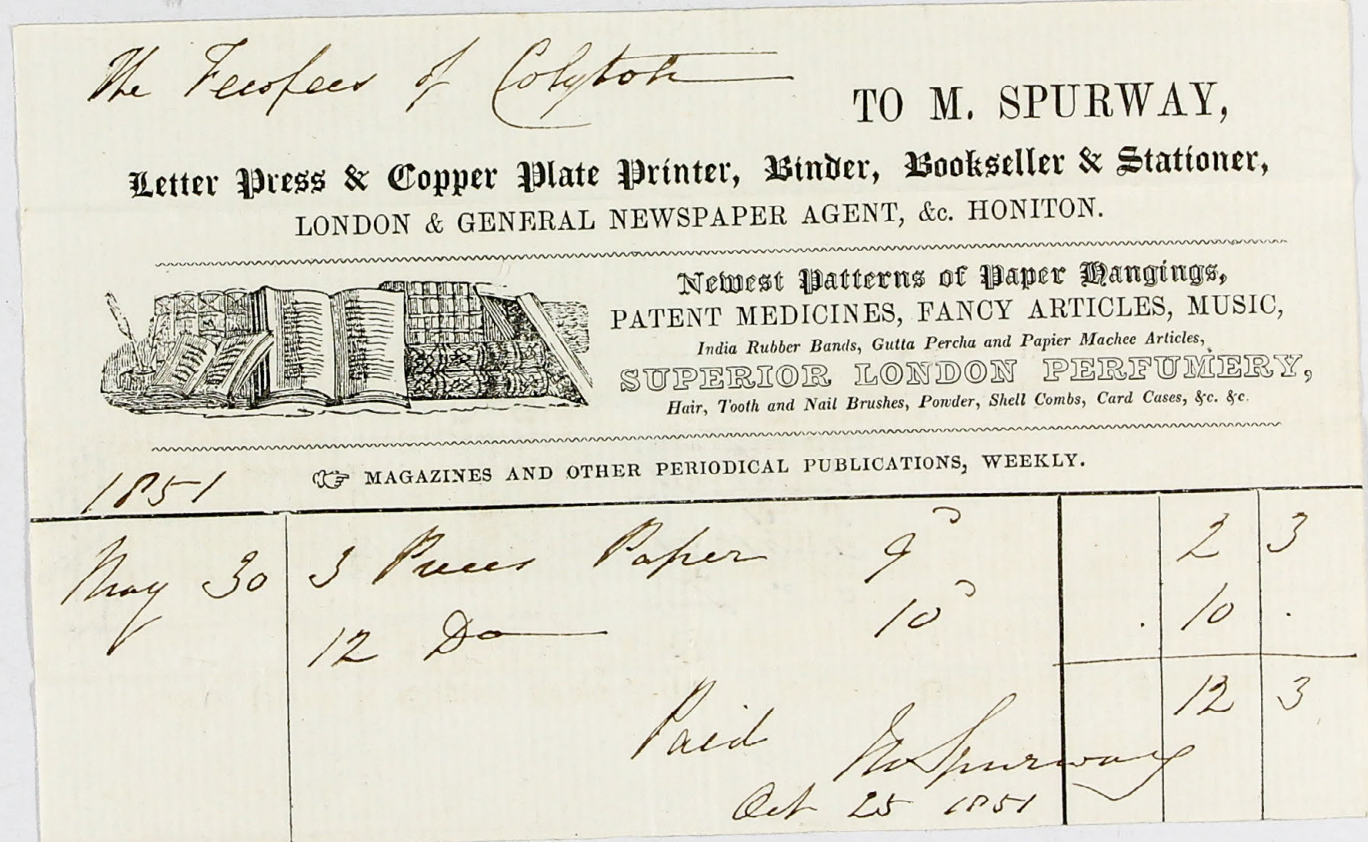 The Feoffees of Colyton
TO M. SPURWAY,
Letter Press & Copper Plate Printer, Binder, Bookseller & Stationer,
LONDON & GENERAL NEWSPAPER AGENT, &c. HONITON.
Newest Patterns of Paper Hangings,
PATENT MEDICINES, FANCY ARTICLES, MUSIC,
India Rubber Bands, Gutta Percha and Papier Machee Articles,
SUPERIOR LONDON PERFUMERY,
Hair, Tooth and Nail Brushes, Powder, Shell Combs, Card Cases, &c. &c.
1851
☞ MAGAZINES AND OTHER PERIODICAL PUBLICATIONS, WEEKLY.
May 30 3 Pieces Paper 9d 2 3
12 Do 10d . 10 .
12 3
Paid M Spurway
Oct 25 1851